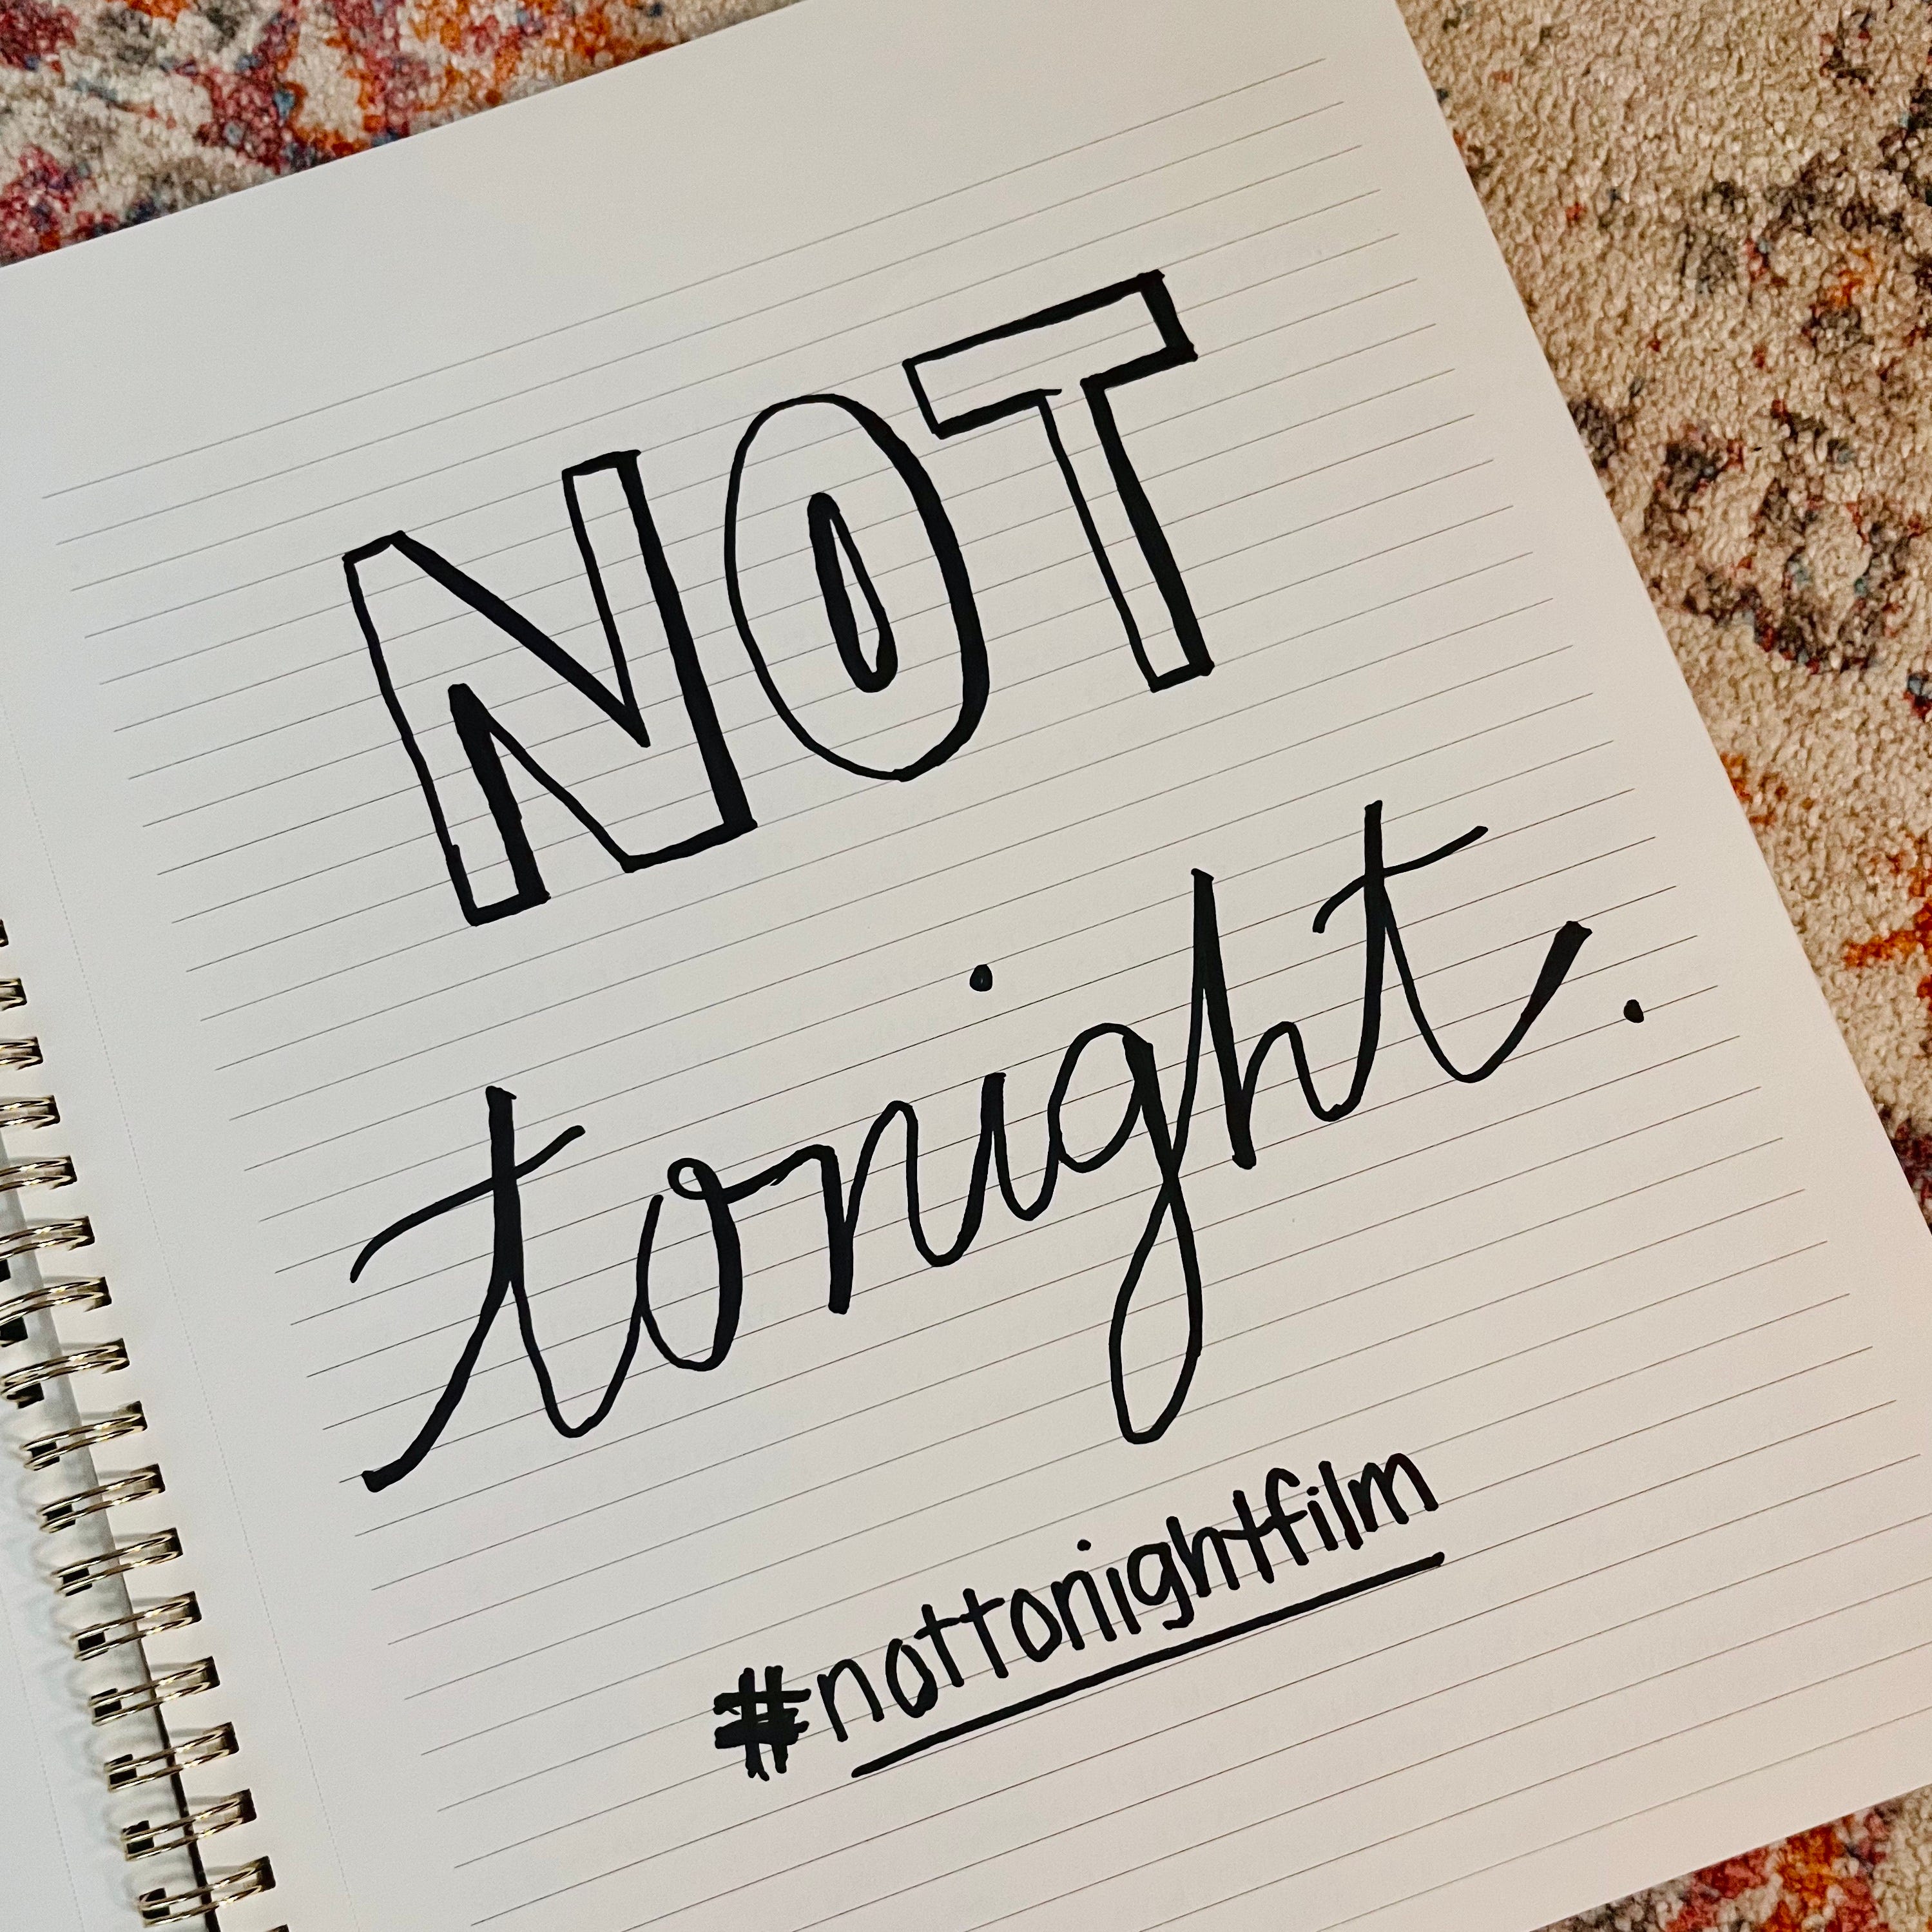 NOT
tonight.
#nottonightfilm